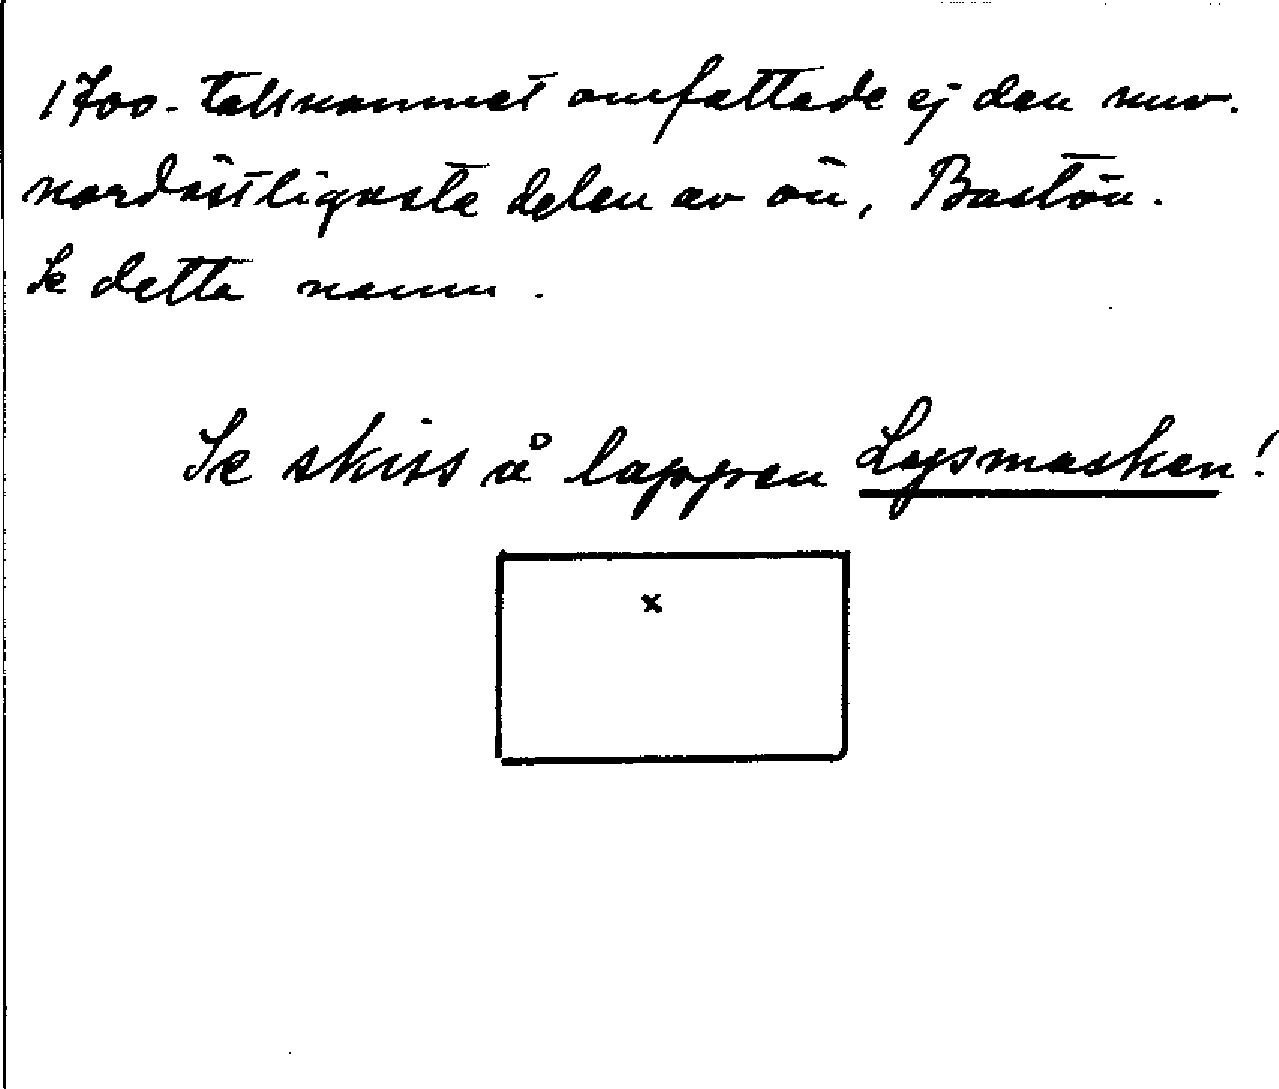 1700-talsnamnet omfattade ej den nuv.
nordöstligaste delen av ön, Bastön.
Se detta namn.
Se skiss å lappen Lysmasken!
x